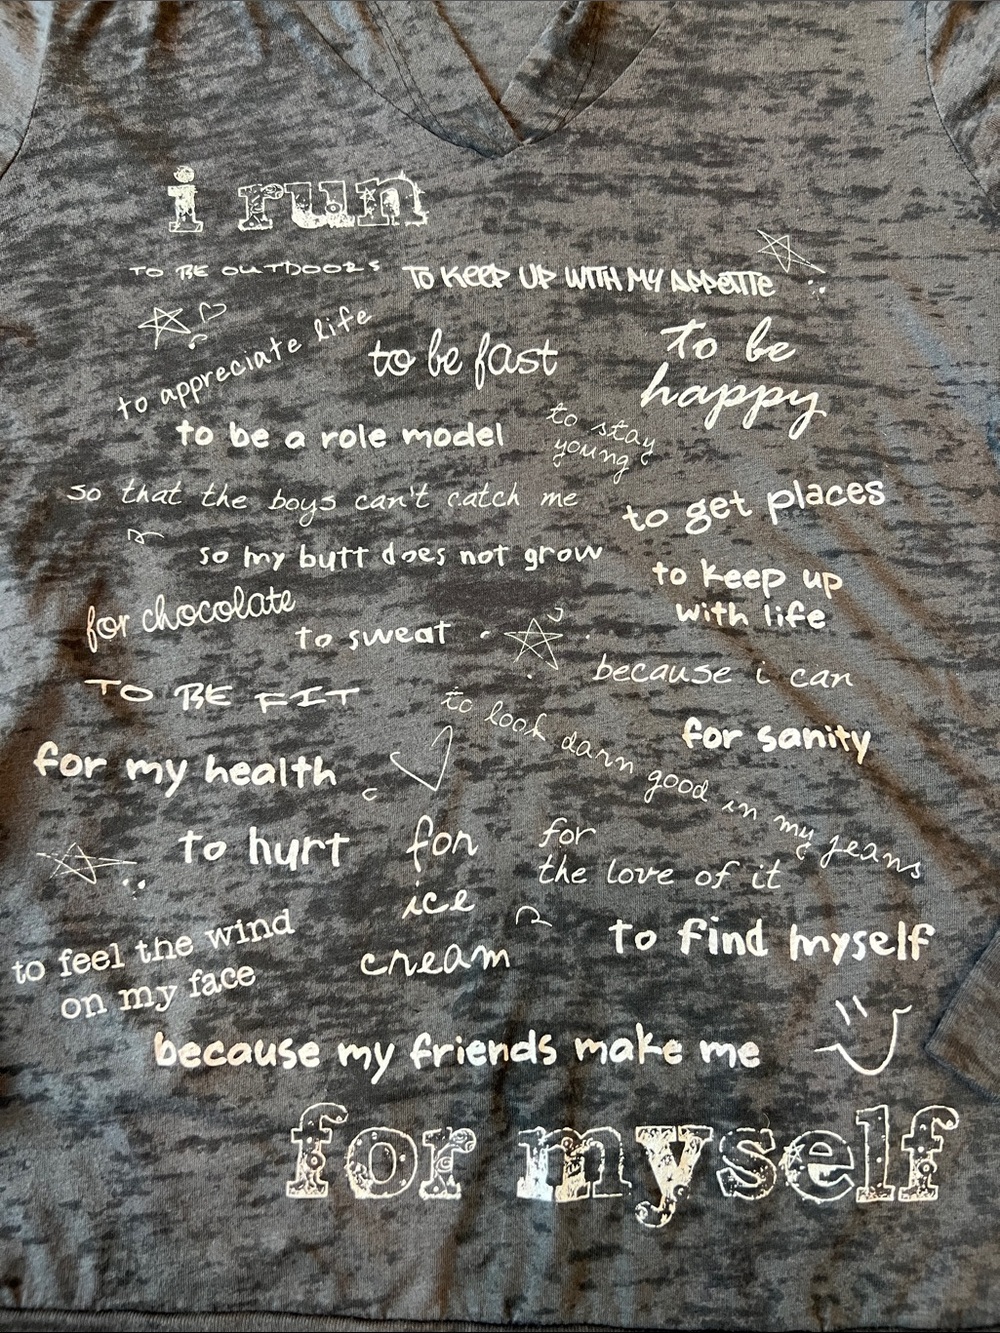 i run
TO BE OUTDOORS
TO KEEP UP WITH MY APPETITE
to appreciate life
to be fast
to be
happy
to be a role model
to stay
young
so that the boys can't catch me
to get places
so my butt does not grow
to keep up
with life
for chocolate
to sweat
because i can
TO BE FIT
to look darn good in my jeans
for sanity
for my health
to hurt
for
ice
cream
for
the love of it
to feel the wind
on my face
to find myself
because my friends make me
for myself